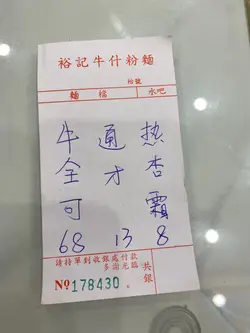 裕記牛什粉麵
枱號
麵檔 水吧
牛全可 通才 热杏霜
68 13 8
請持單到收銀處付款
多謝光臨
共銀
№ 178430